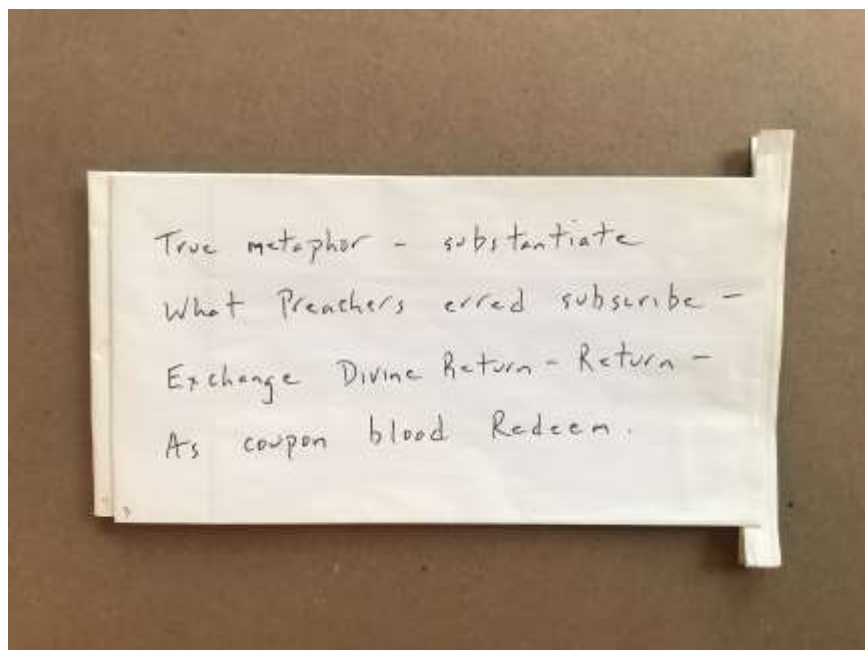 True metaphor - substantiate
What Preachers erred subscribe -
Exchange Divine Return - Return -
As coupon blood Redeem.